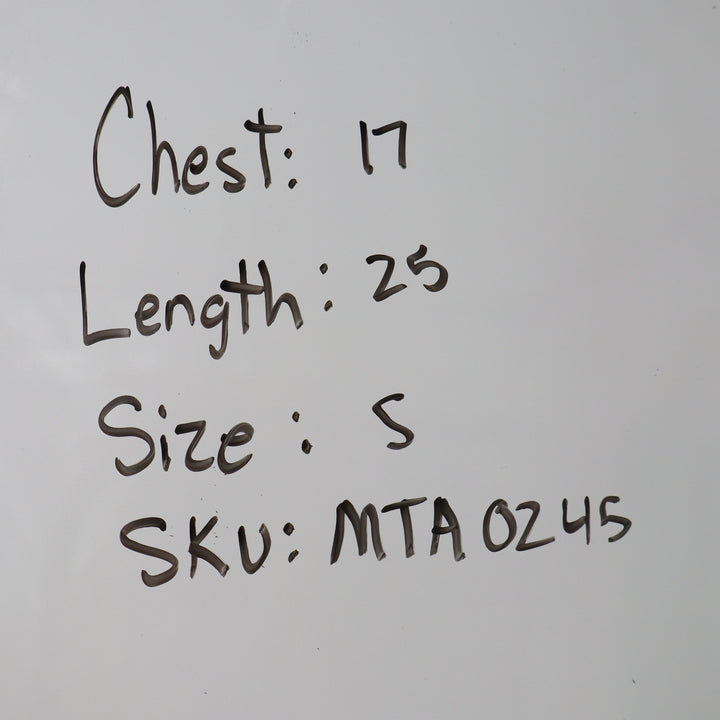 Chest: 17
Length: 25
Size: S
SKU: MTA0245